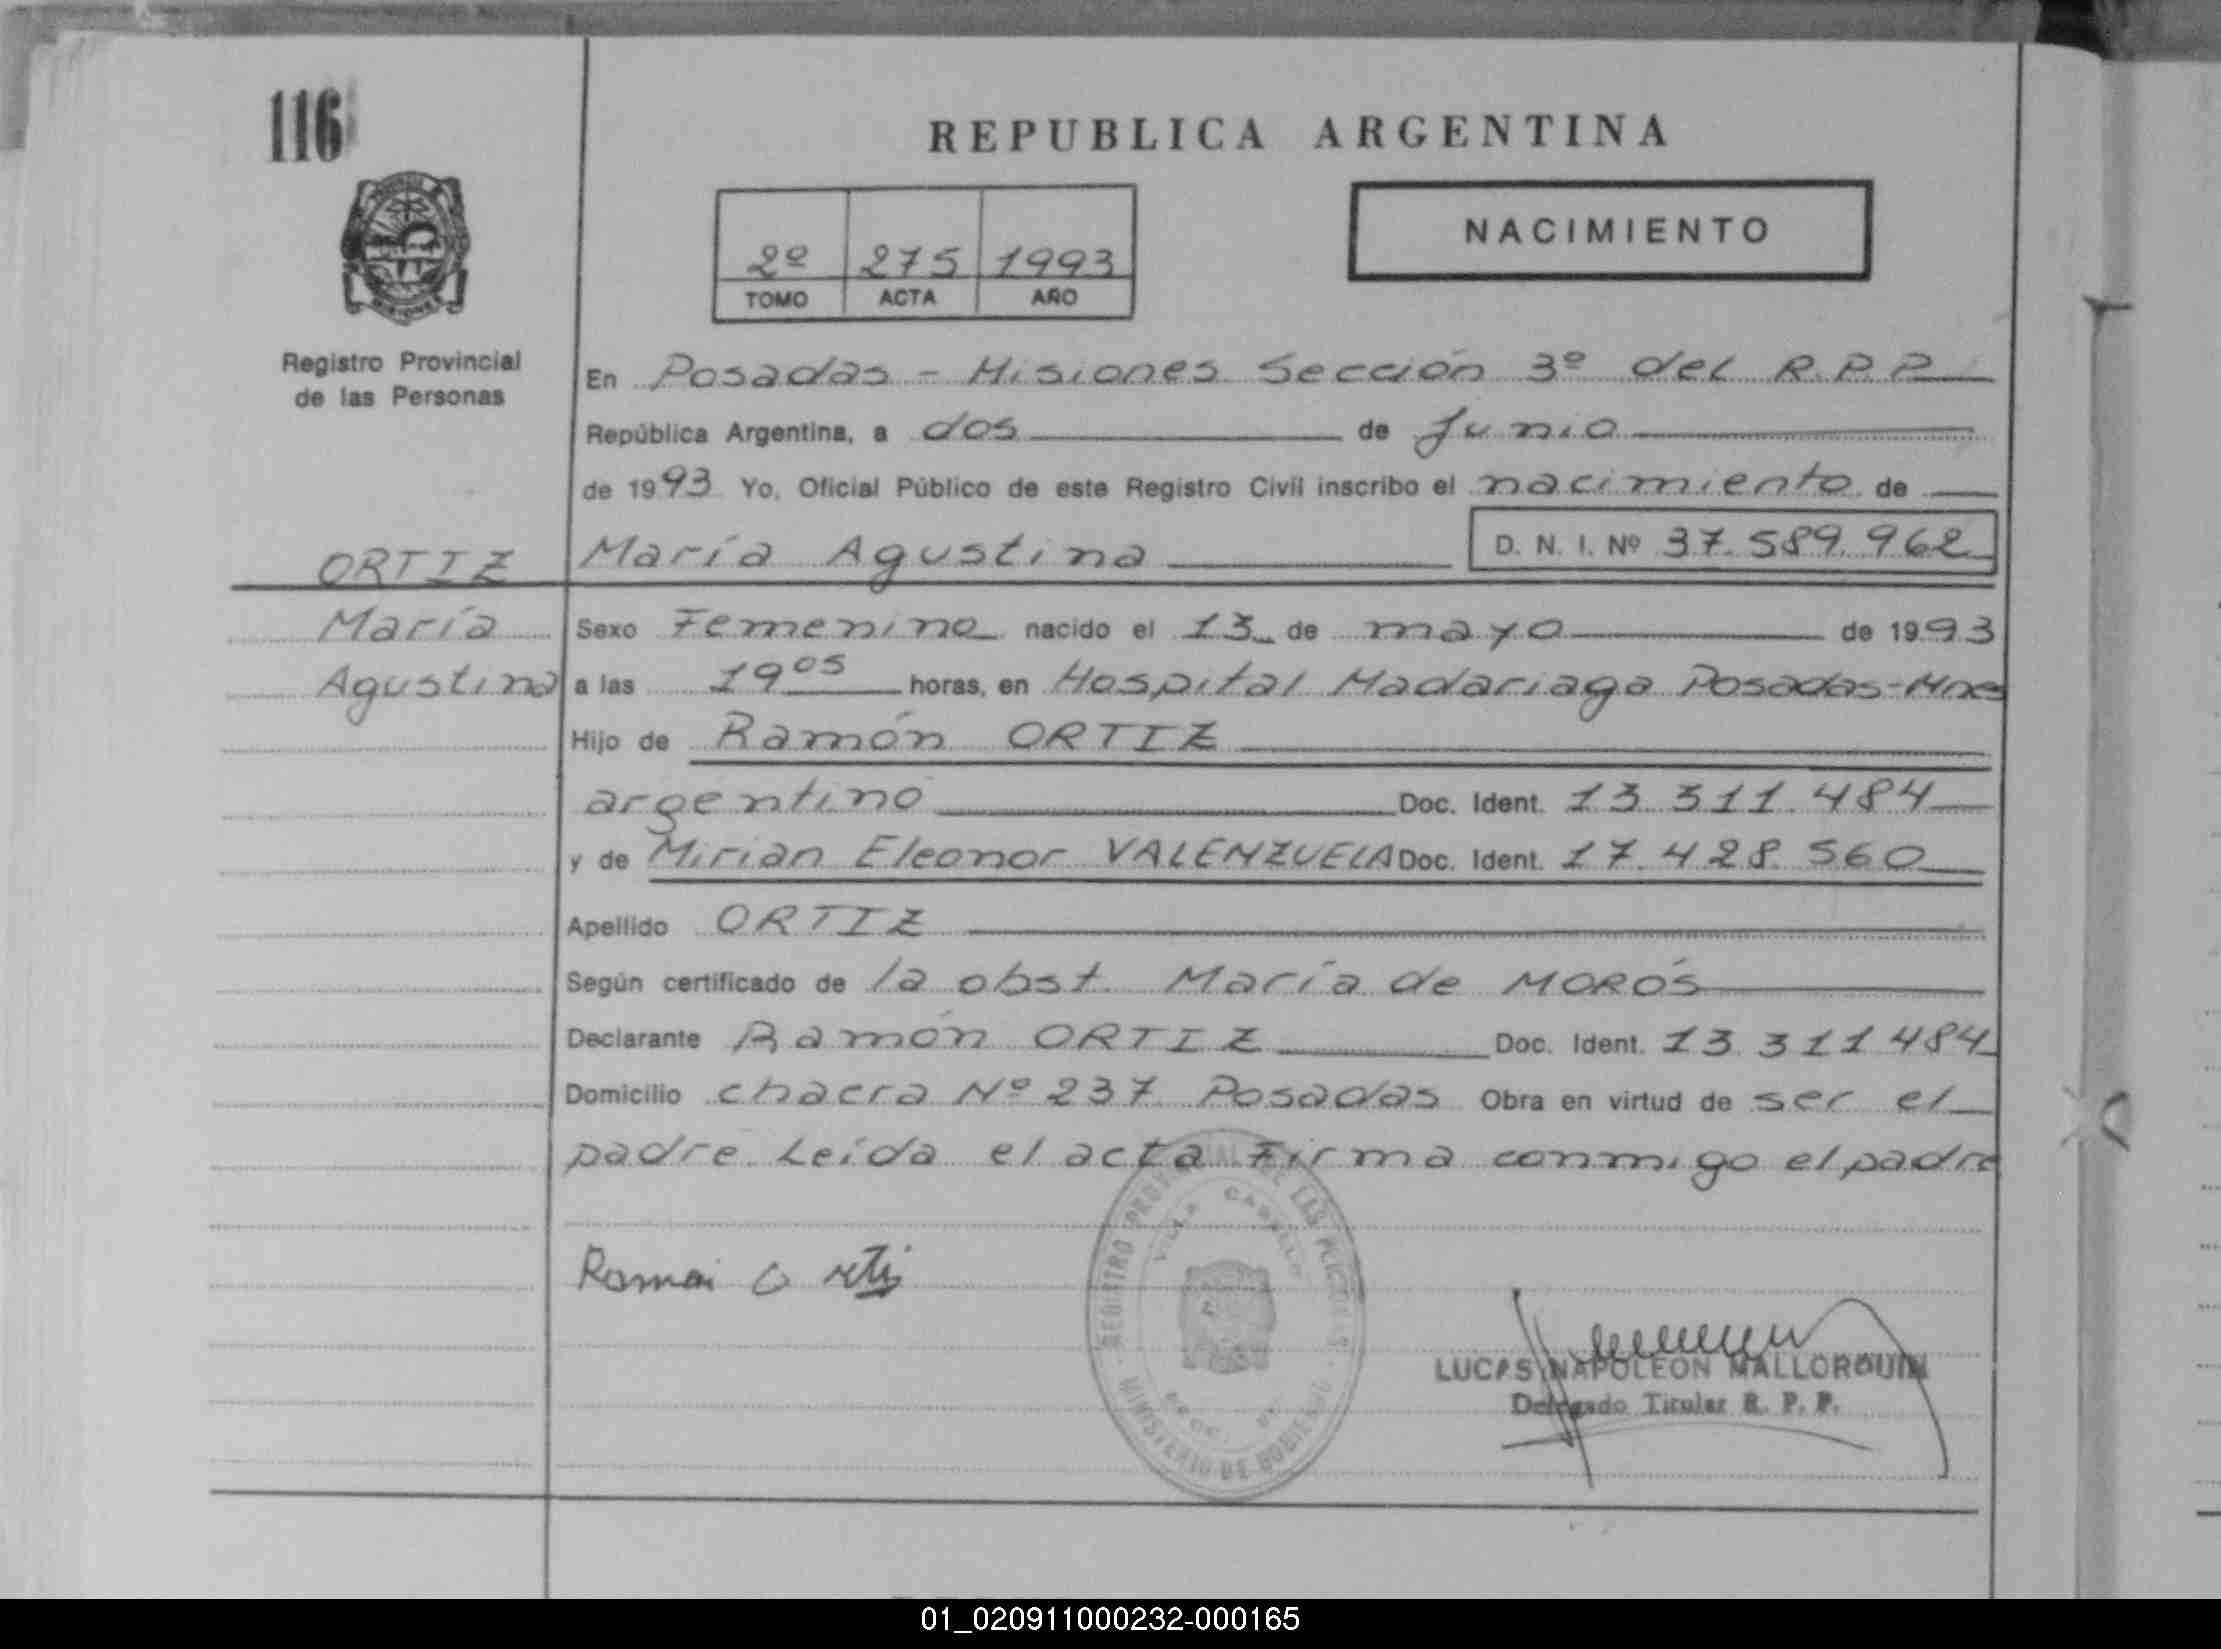 116
REPUBLICA ARGENTINA
NACIMIENTO
2º 275 1993
TOMO ACTA AÑO
Registro Provincial
de las Personas
En Posadas - Misiones Sección 3º del R.P.P
República Argentina, a dos de Junio
de 1993 Yo, Oficial Público de este Registro Civil inscribo el nacimiento de
ORTIZ
María
Agustina
María Agustina D. N. I. Nº 37.589.962
Sexo Femenino nacido el 13 de mayo de 1993
a las 19 05 horas, en Hospital Madariaga Posadas-Mnes
Hijo de Ramón ORTIZ
argentino Doc. Ident. 13.311.484
y de Mirian Eleonor VALENZUELA Doc. Ident. 17.428.560
Apellido ORTIZ
Según certificado de la obst. María de MORÓS
Declarante Ramón ORTIZ Doc. Ident. 13.311484
Domicilio chacra Nº 237 Posadas Obra en virtud de ser el
padre Leída el acta Firma conmigo el padre
REGISTRO PROVINCIAL DE LAS PERSONAS
VILLA CABELLO
MINISTERIO DE GOBIERNO
LUCAS NAPOLEON MALLORQUIN
Delegado Titular R. P. P.
01_020911000232-000165